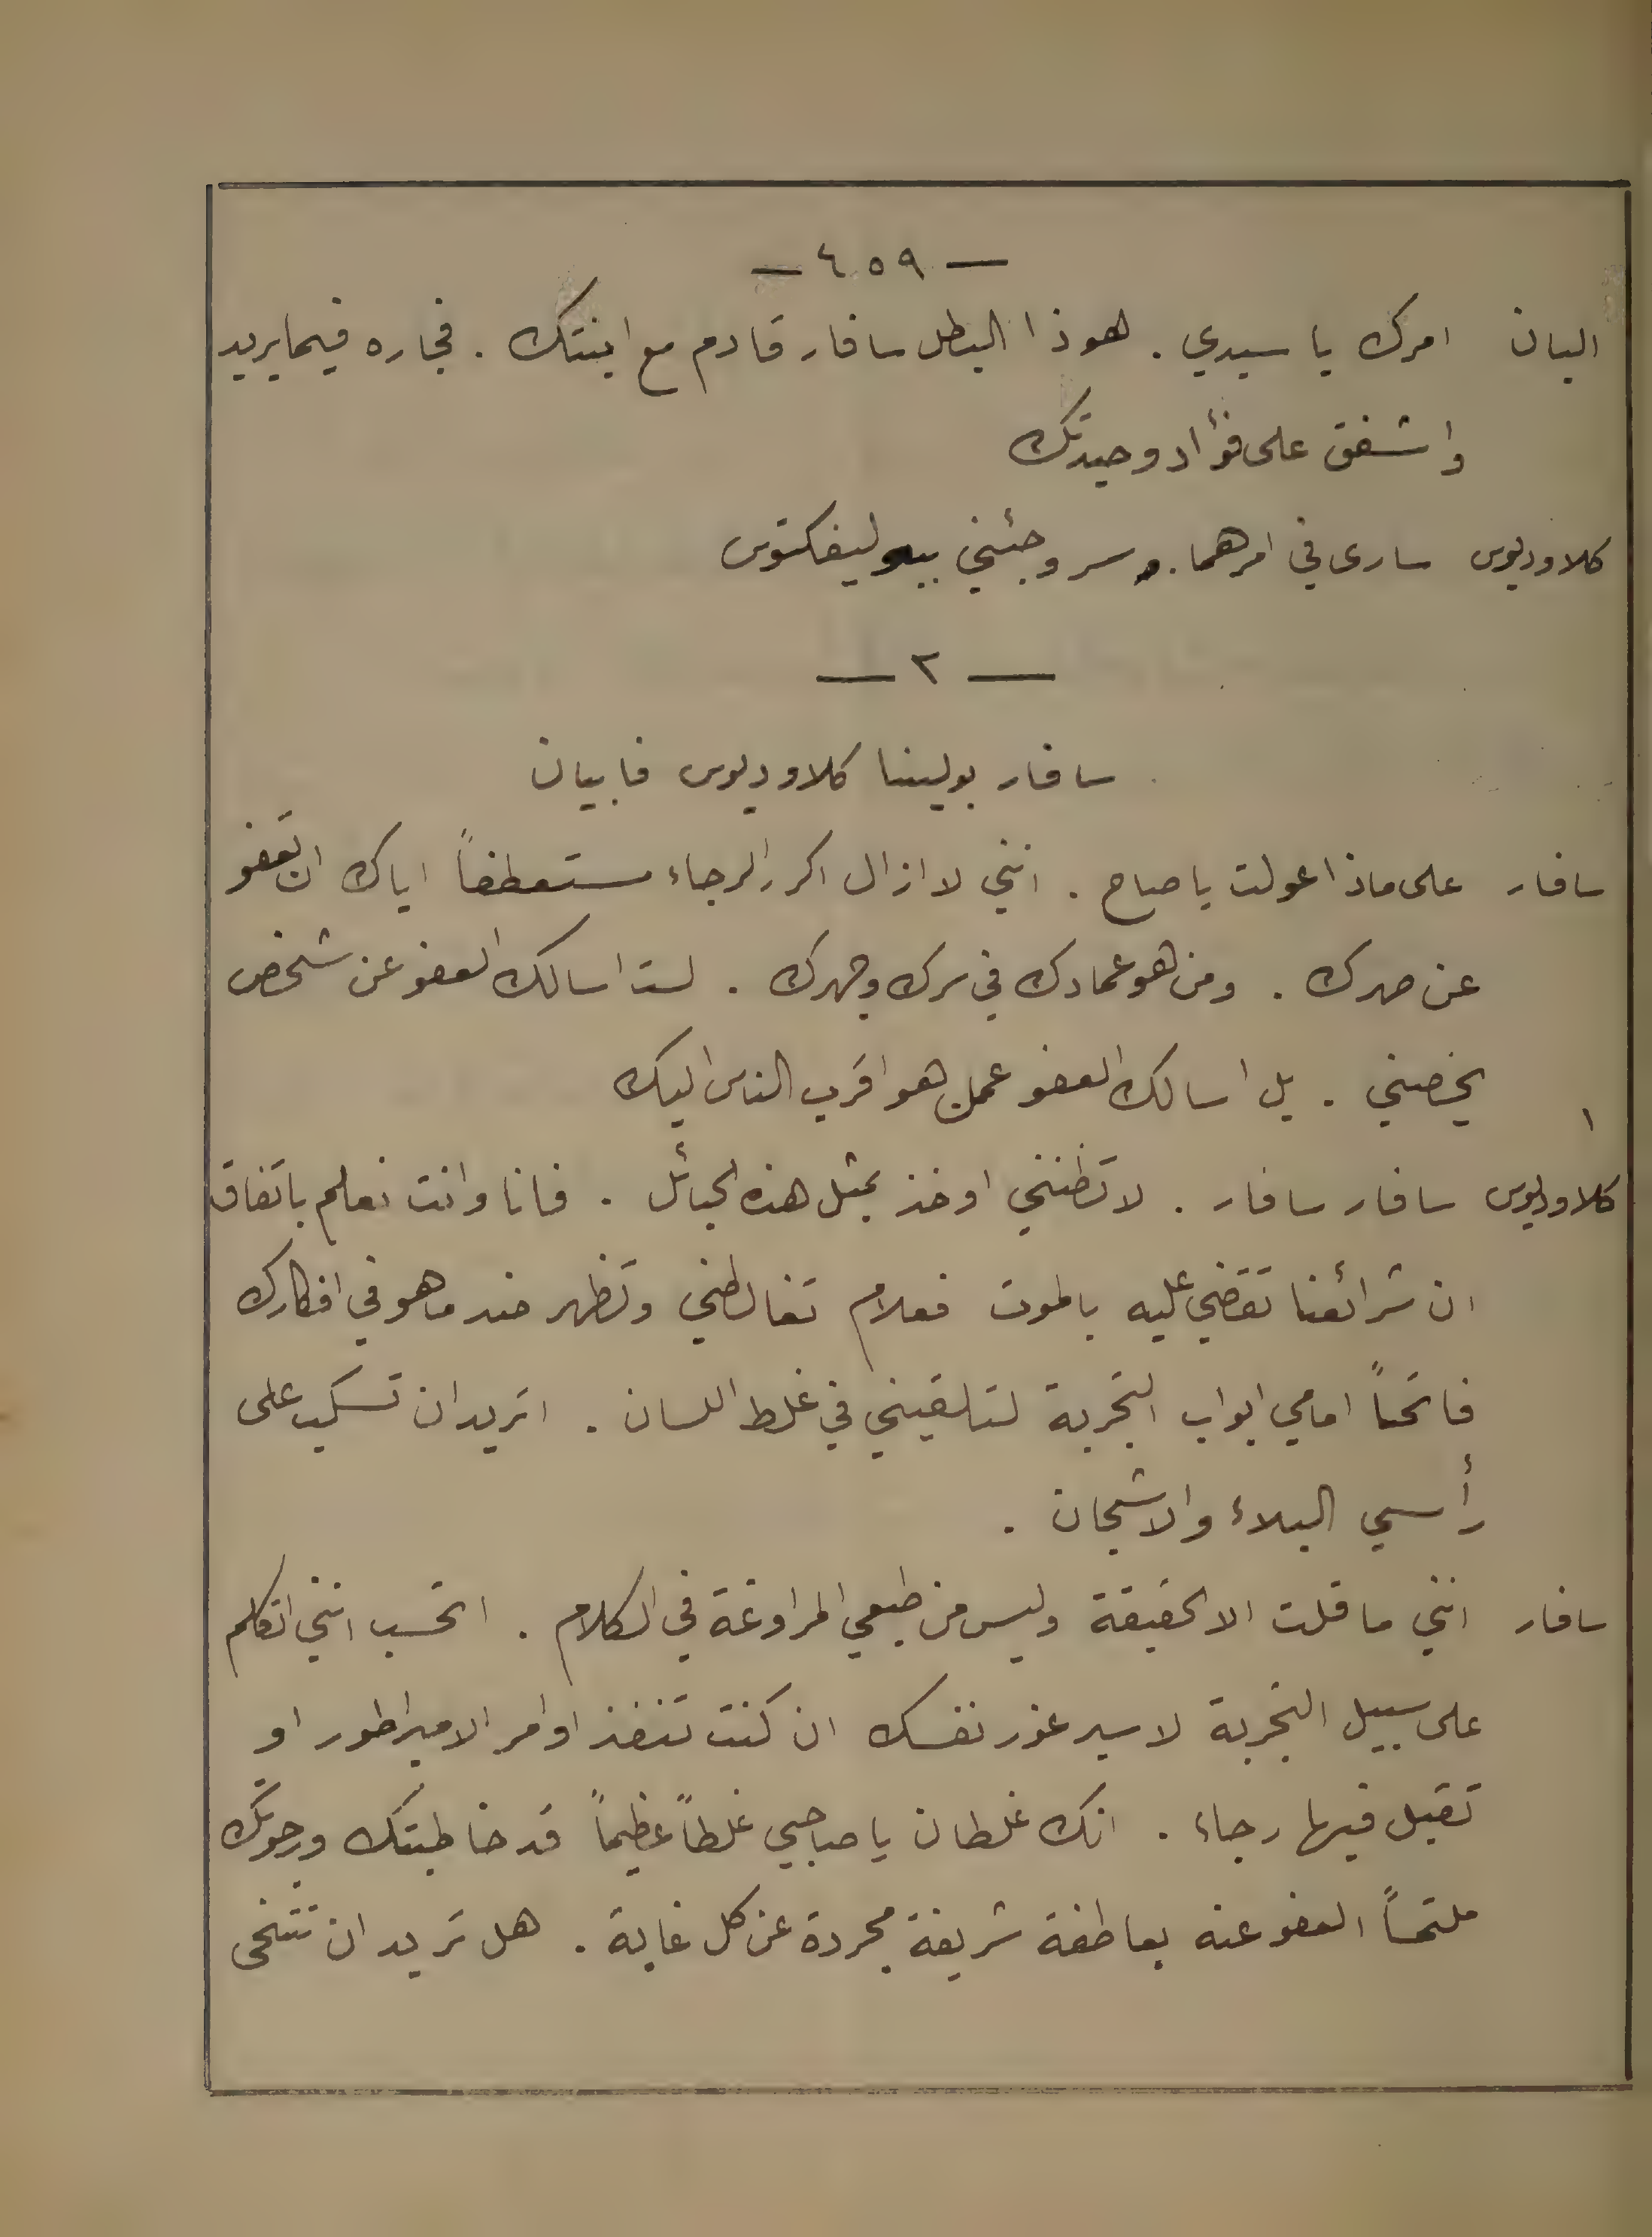 — ٤٥٩ —
البان امرك يا سيدي . هوذا البطل سافار قادم مع ابنتك . فجاره فيما يريد
واشفق على فؤاد وحيدتك
كلاوديوس سارى في امرهما . سر وجئني ببوليفكتوس
— ٢ —
سافار بولينا كلاوديوس فابيان
سافار على ماذا عولت يا صاح . انني لا ازال اكرر الرجاء مستعطفاً اياك ان تعفو
عن صهرك . ومن هو عمادك في سرك وجهرك . لست اسالك العفو عن شخص
يخصني . بل اسالك العفو عمن هو اقرب الناس اليك
كلاوديوس سافار سافار . لا تظنني اوخذ بمثل هذه الحبائل . فانا وانت نعلم باتفاق
ان شرائعنا تقضي عليه بالموت فعلام تغالطني وتظهر ضد ما هو في افكارك
فاتحاً امامي ابواب التجربة لتلقيني في غلط اللسان . اتريد ان تسكب على
رأسي البلاء والاشجان .
سافار انني ما قلت الا الحقيقة وليس من طبعي المراوغة في الكلام . اتحسب انني اتكلم
على سبيل التجربة لاسبر غور نفسك ان كنت تنفذ اوامر الامبراطور او
تقبل فيها رجاء . انك غلطان يا صاحبي غلطاً عظيماً قد خاطبتك ورجوتك
ملتمساً العفو عنه بعاطفة شريفة مجردة عن كل غاية . هل تريد ان تتنحى